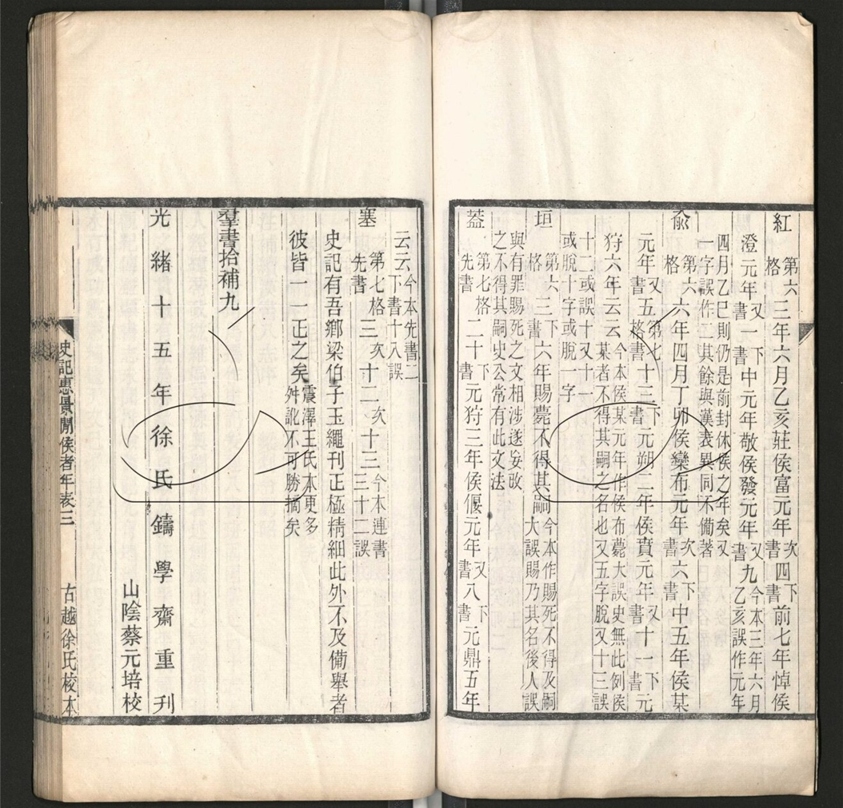 紅第六格三年六月乙亥莊侯富元年次書四下書前七年悼侯
澄元年又書一下書中元年敬侯發元年又書九今本三年六月乙亥誤作元年
四月乙巳則仍是前封休侯之年矣又
一字誤作二其餘與漢表異同不備著
俞第六格六年四月丁卯侯欒布元年次書六下書中五年侯某
元年又書五第七格書十三下書元朔二年侯賁元年又書十一下書元
狩六年云云今本侯某元年作侯布薨大誤史無此例侯某者不得其嗣之名也又五字脫又十三誤
十二或誤十又十一
或脫十字或脫一字
垣第六格三下書六年賜薨不得其嗣今本作賜死不得及嗣大誤賜乃其名後人誤
與有罪賜死之文相涉遂妄改
之不得其嗣史公常有此文法
蓋第七格先書二十下書元狩三年侯偃元年又書八下書元鼎五年
云云今本先書二下書十八誤
塞第七格先書三次十二次十三今本連書三十二誤
史記有吾鄉梁伯子玉繩刊正極精細此外不及備舉者
彼皆一一正之矣震澤王氏本更多舛訛不可勝摘矣
羣書拾補九
光緒十五年徐氏鑄學齋重刊
山陰蔡元培校
史記惠景閒侯者年表三
古越徐氏校本